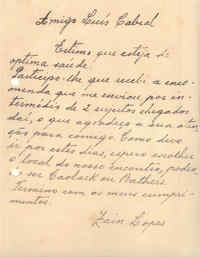 Amigo Luís Cabral
Estimo que esteja de
optima saúde.
Participo-lhe que recebi a enco-
menda que me enviou por in-
termédio de 2 sujeitos chegados
daí, o que agradeço a sua aten-
ção para comigo. Como devo
ir por estes dias, espero escolher
o local do nosso encontro, poden-
do ser Caolack ou
Termino com os meus cumpri-
mentos.
Zain Lopes